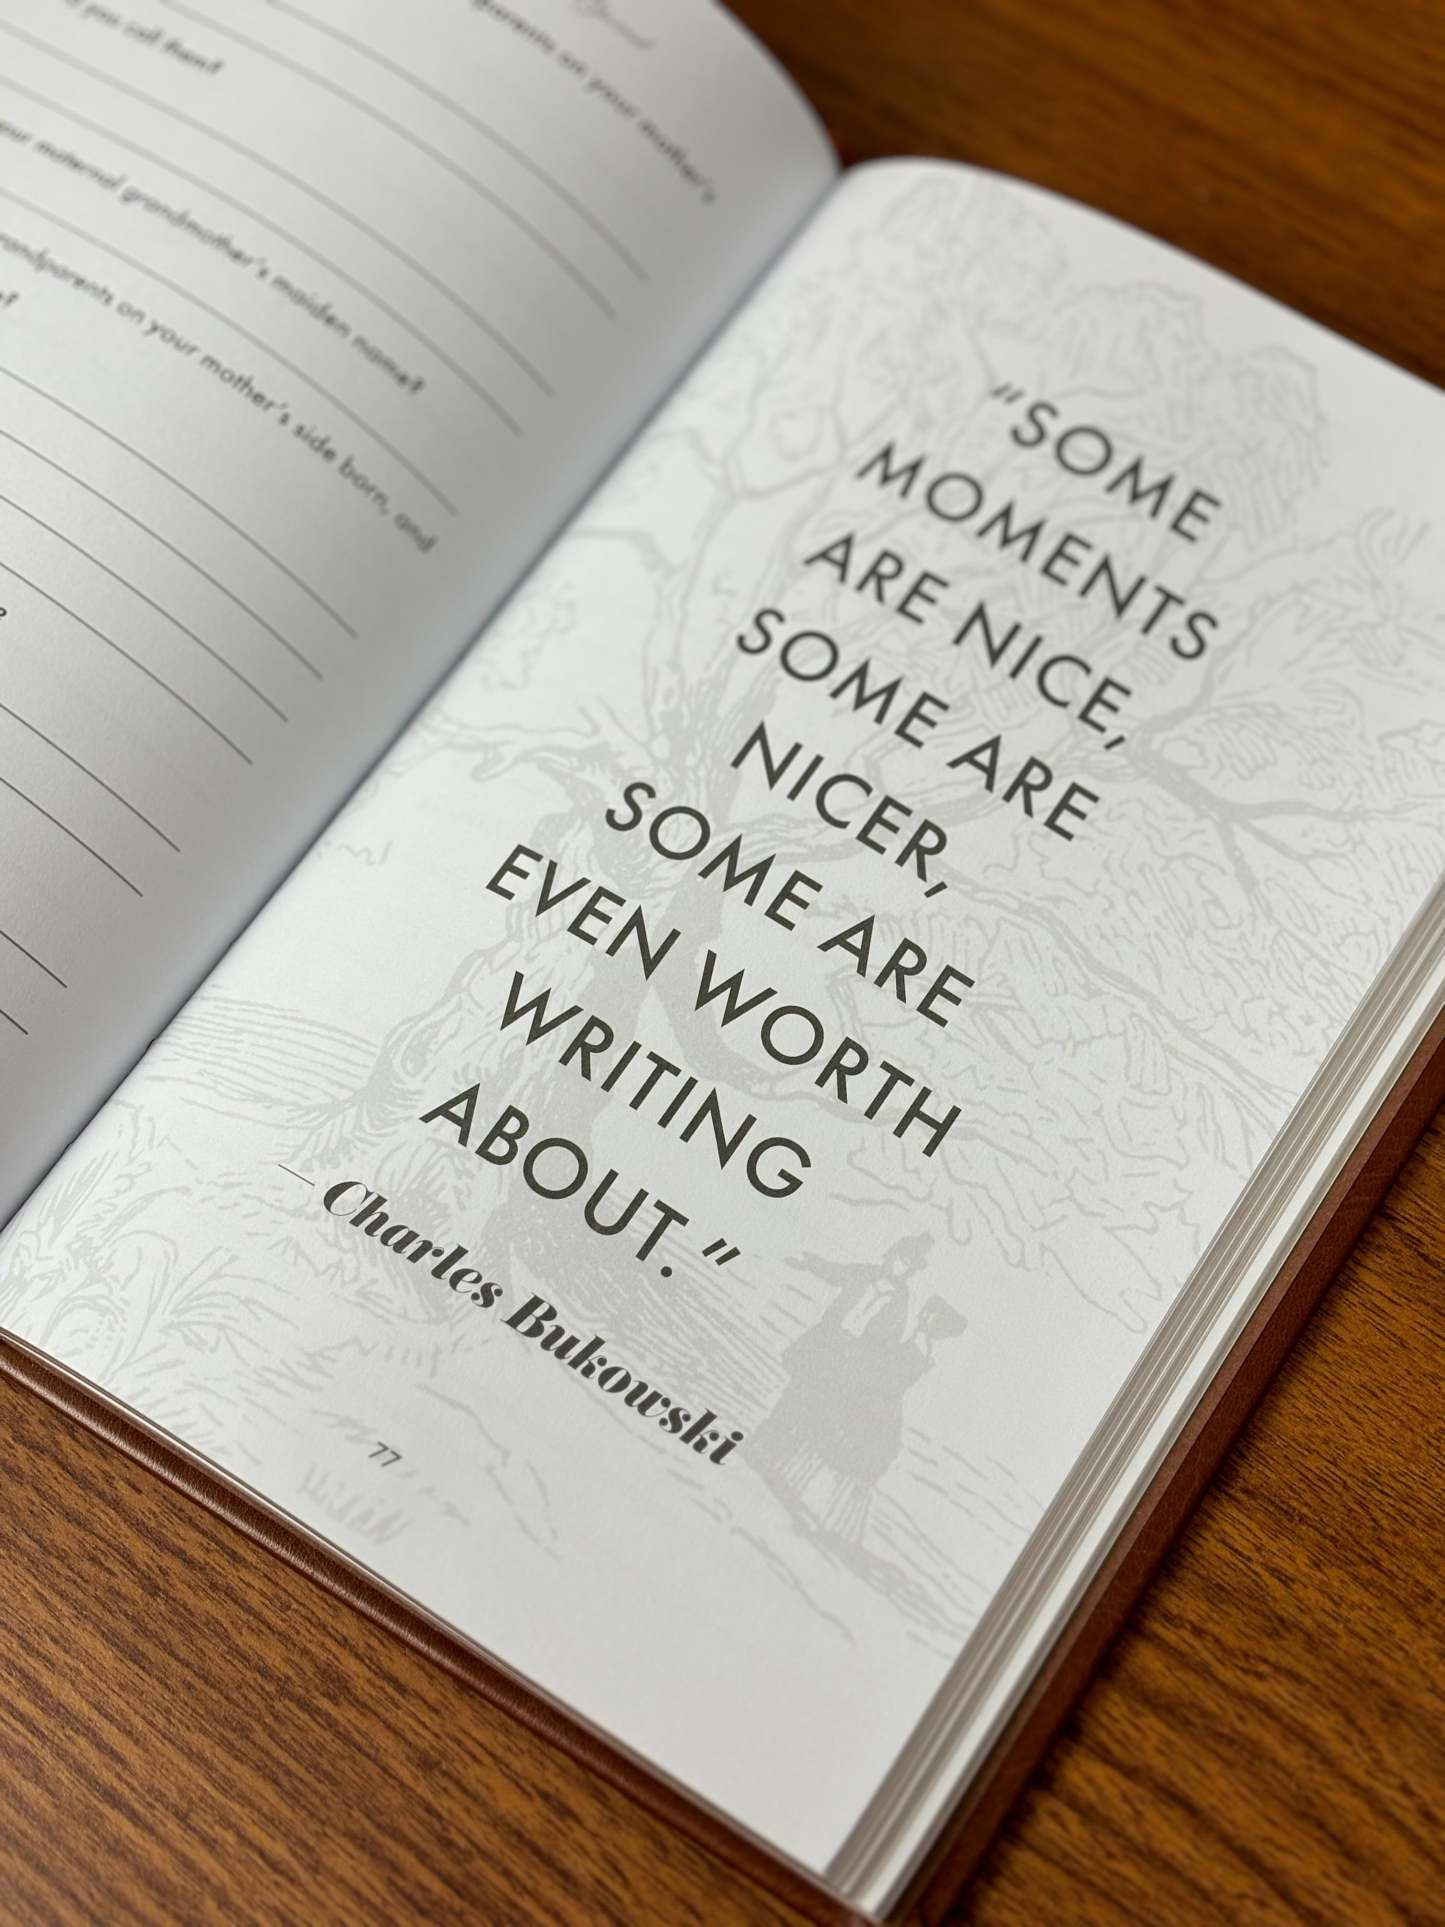 you call them?
maternal grandmother's maiden name?
grandparents on your mother's side born, and
on your mother's
"SOME
MOMENTS
ARE NICE,
SOME ARE
NICER,
SOME ARE
EVEN WORTH
WRITING
ABOUT."
— Charles Bukowski
77